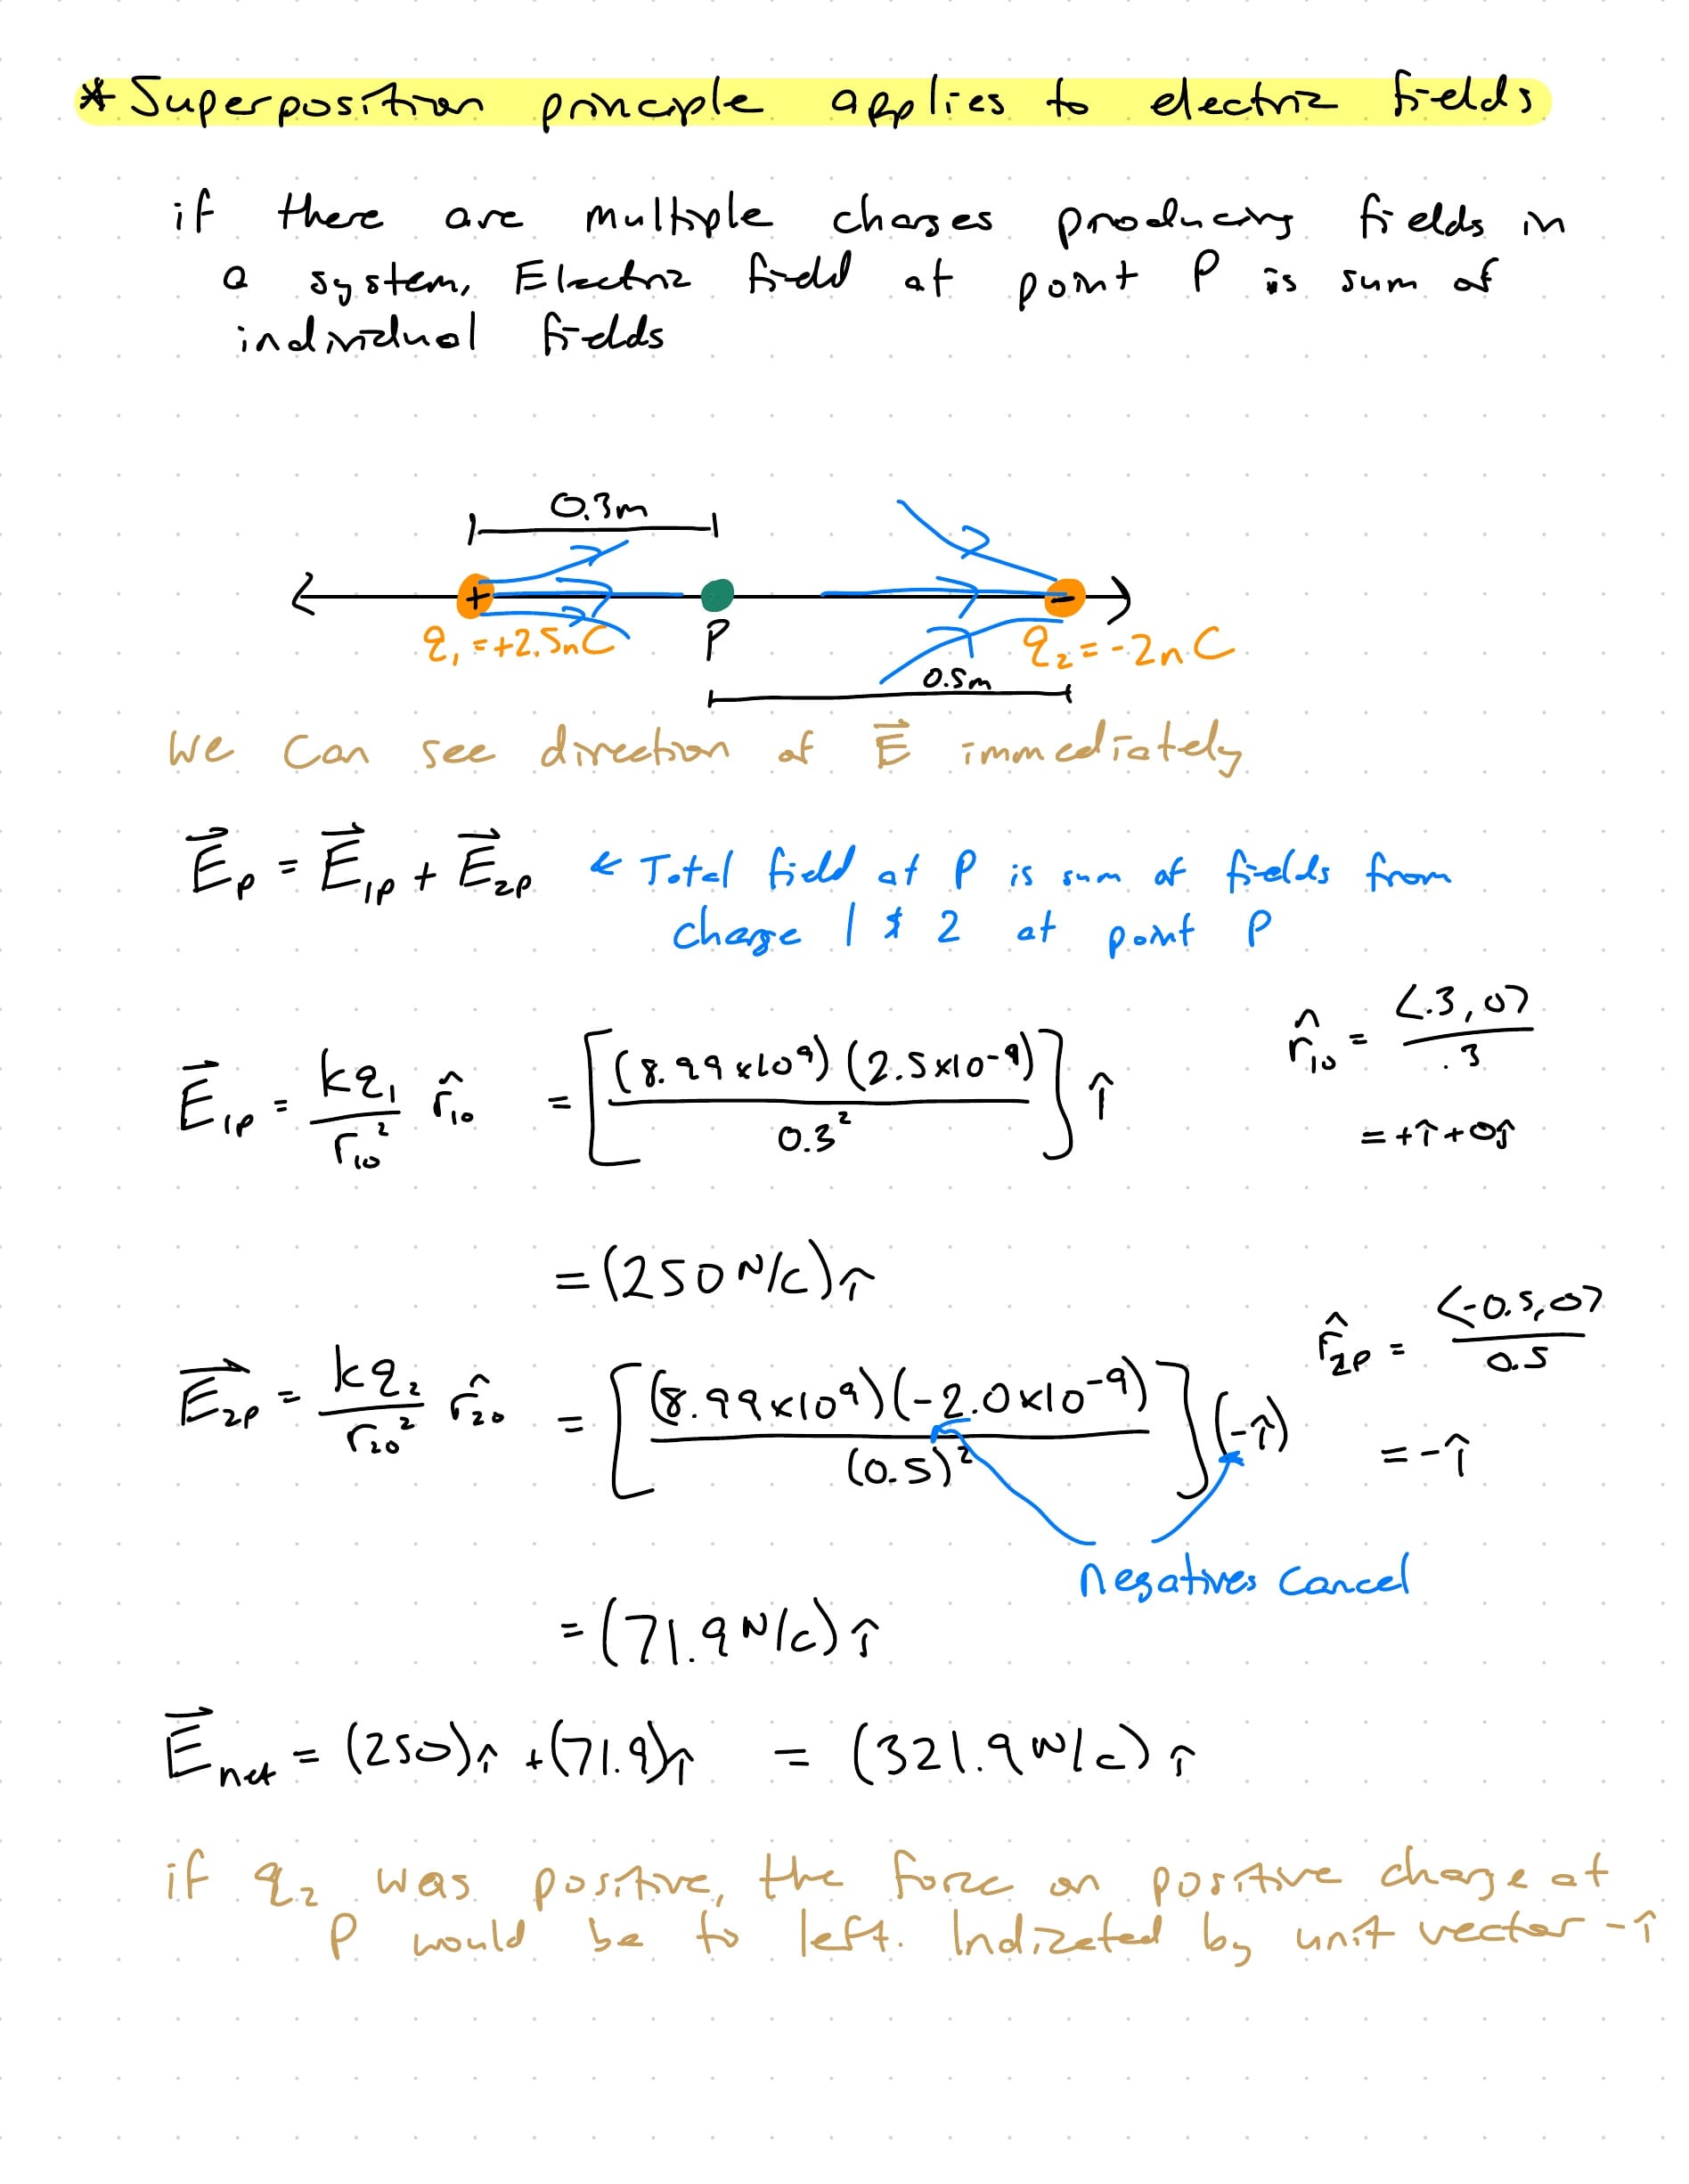 * Superposition principle applies to electric fields
if there are multiple charges producing fields in
a system, Electric field at point P is sum of
individual fields
0.3m
+
-
q₁ = +2.5nC
P
q₂ = -2nC
0.5m
We can see direction of E⃗ immediately
E⃗p = E⃗₁p + E⃗₂p ← Total field at P is sum of fields from
charge 1 & 2 at point P
E⃗₁p = kq₁/r₁₀² r̂₁₀ = [(8.99x10⁹)(2.5x10⁻⁹)/0.3²] î
r̂₁₀ = <.3,0>/.3
= +î+0ĵ
= (250 N/C) î
E⃗₂p = kq₂/r₂₀² r̂₂₀ = [(8.99x10⁹)(-2.0x10⁻⁹)/(0.5)²] (-î)
r̂₂p = <-0.5,0>/0.5
= -î
negatives cancel
= (71.9 N/C) î
E⃗net = (250)î + (71.9)î = (321.9 N/C) î
if q₂ was positive, the force on positive charge at
P would be to left. Indicated by unit vector -î